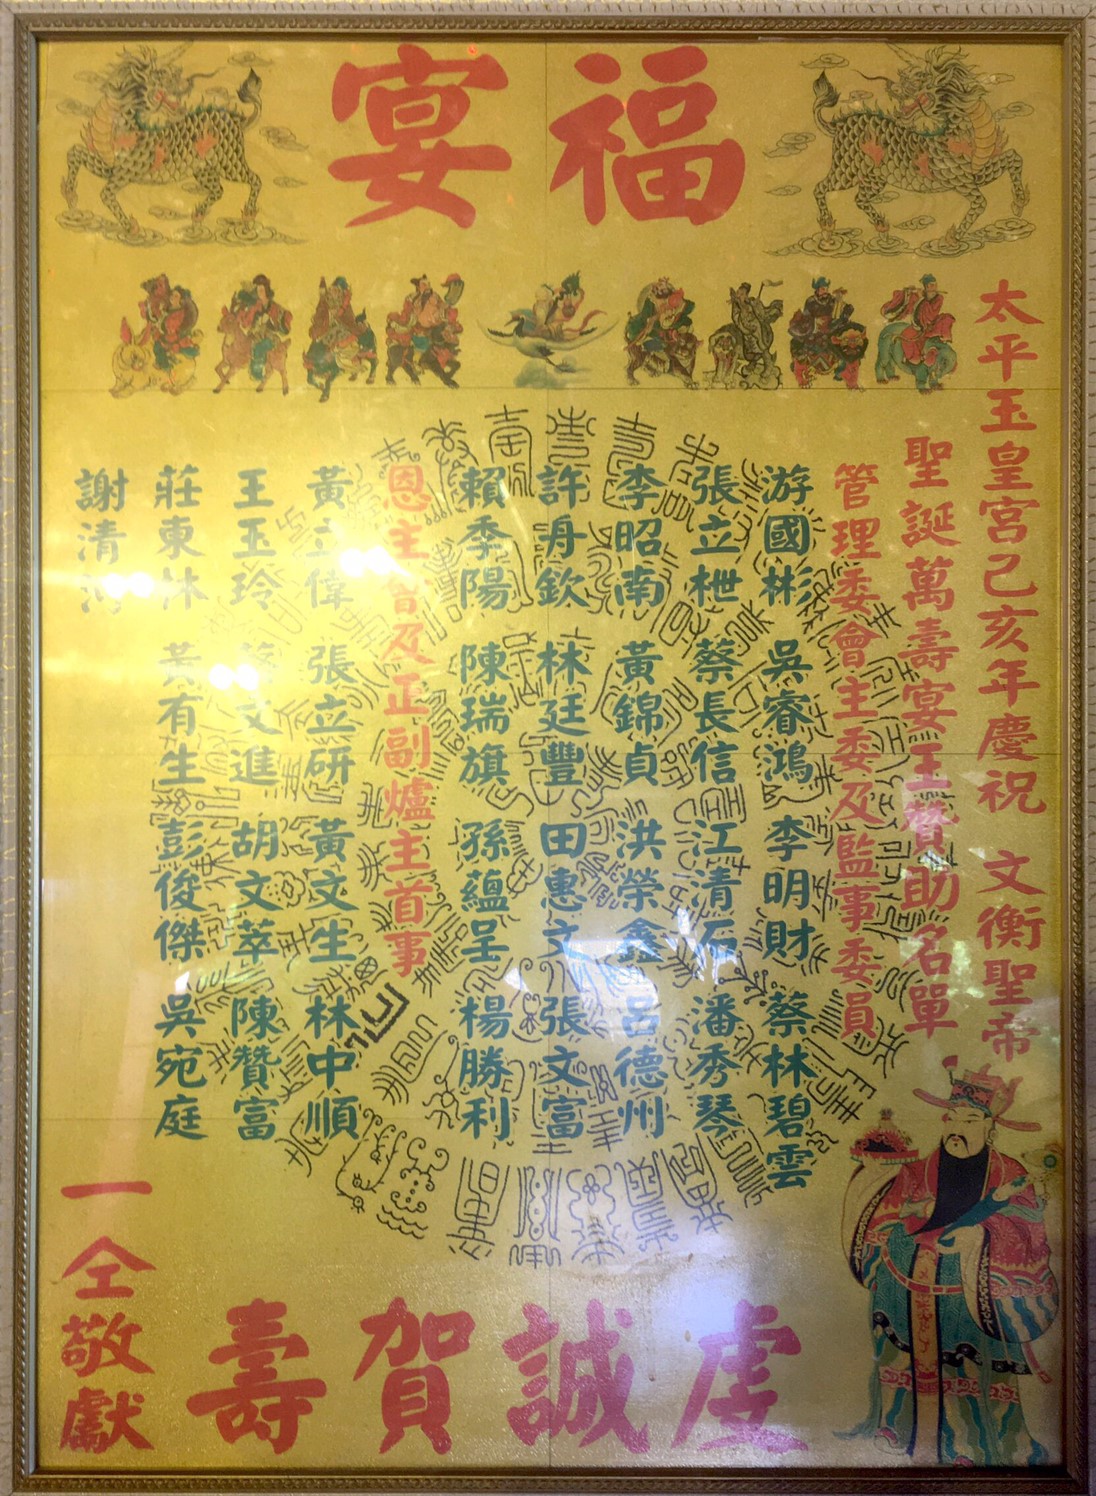 福宴
太平玉皇宮己亥年慶祝 文衡聖帝
聖誕萬壽宴王贊助名單
管理委會主委及監事委員
游國彬 吳睿鴻 李明財 蔡林碧雲
張立枻 蔡長信 江清石 潘秀琴
李昭南 黃錦貞 洪榮鑫 呂德州
許舟欽 林廷豐 田惠文 張文富
賴季陽 陳瑞旗 孫蘊呈 楊勝利
恩主會及正副爐主首事
黃立偉 張立研 黃文生 林中順
王玉玲 文進 胡文萃 陳贊富
莊東沐 黃有生 彭俊傑 吳宛庭
謝清
虔誠賀壽
一仝敬獻